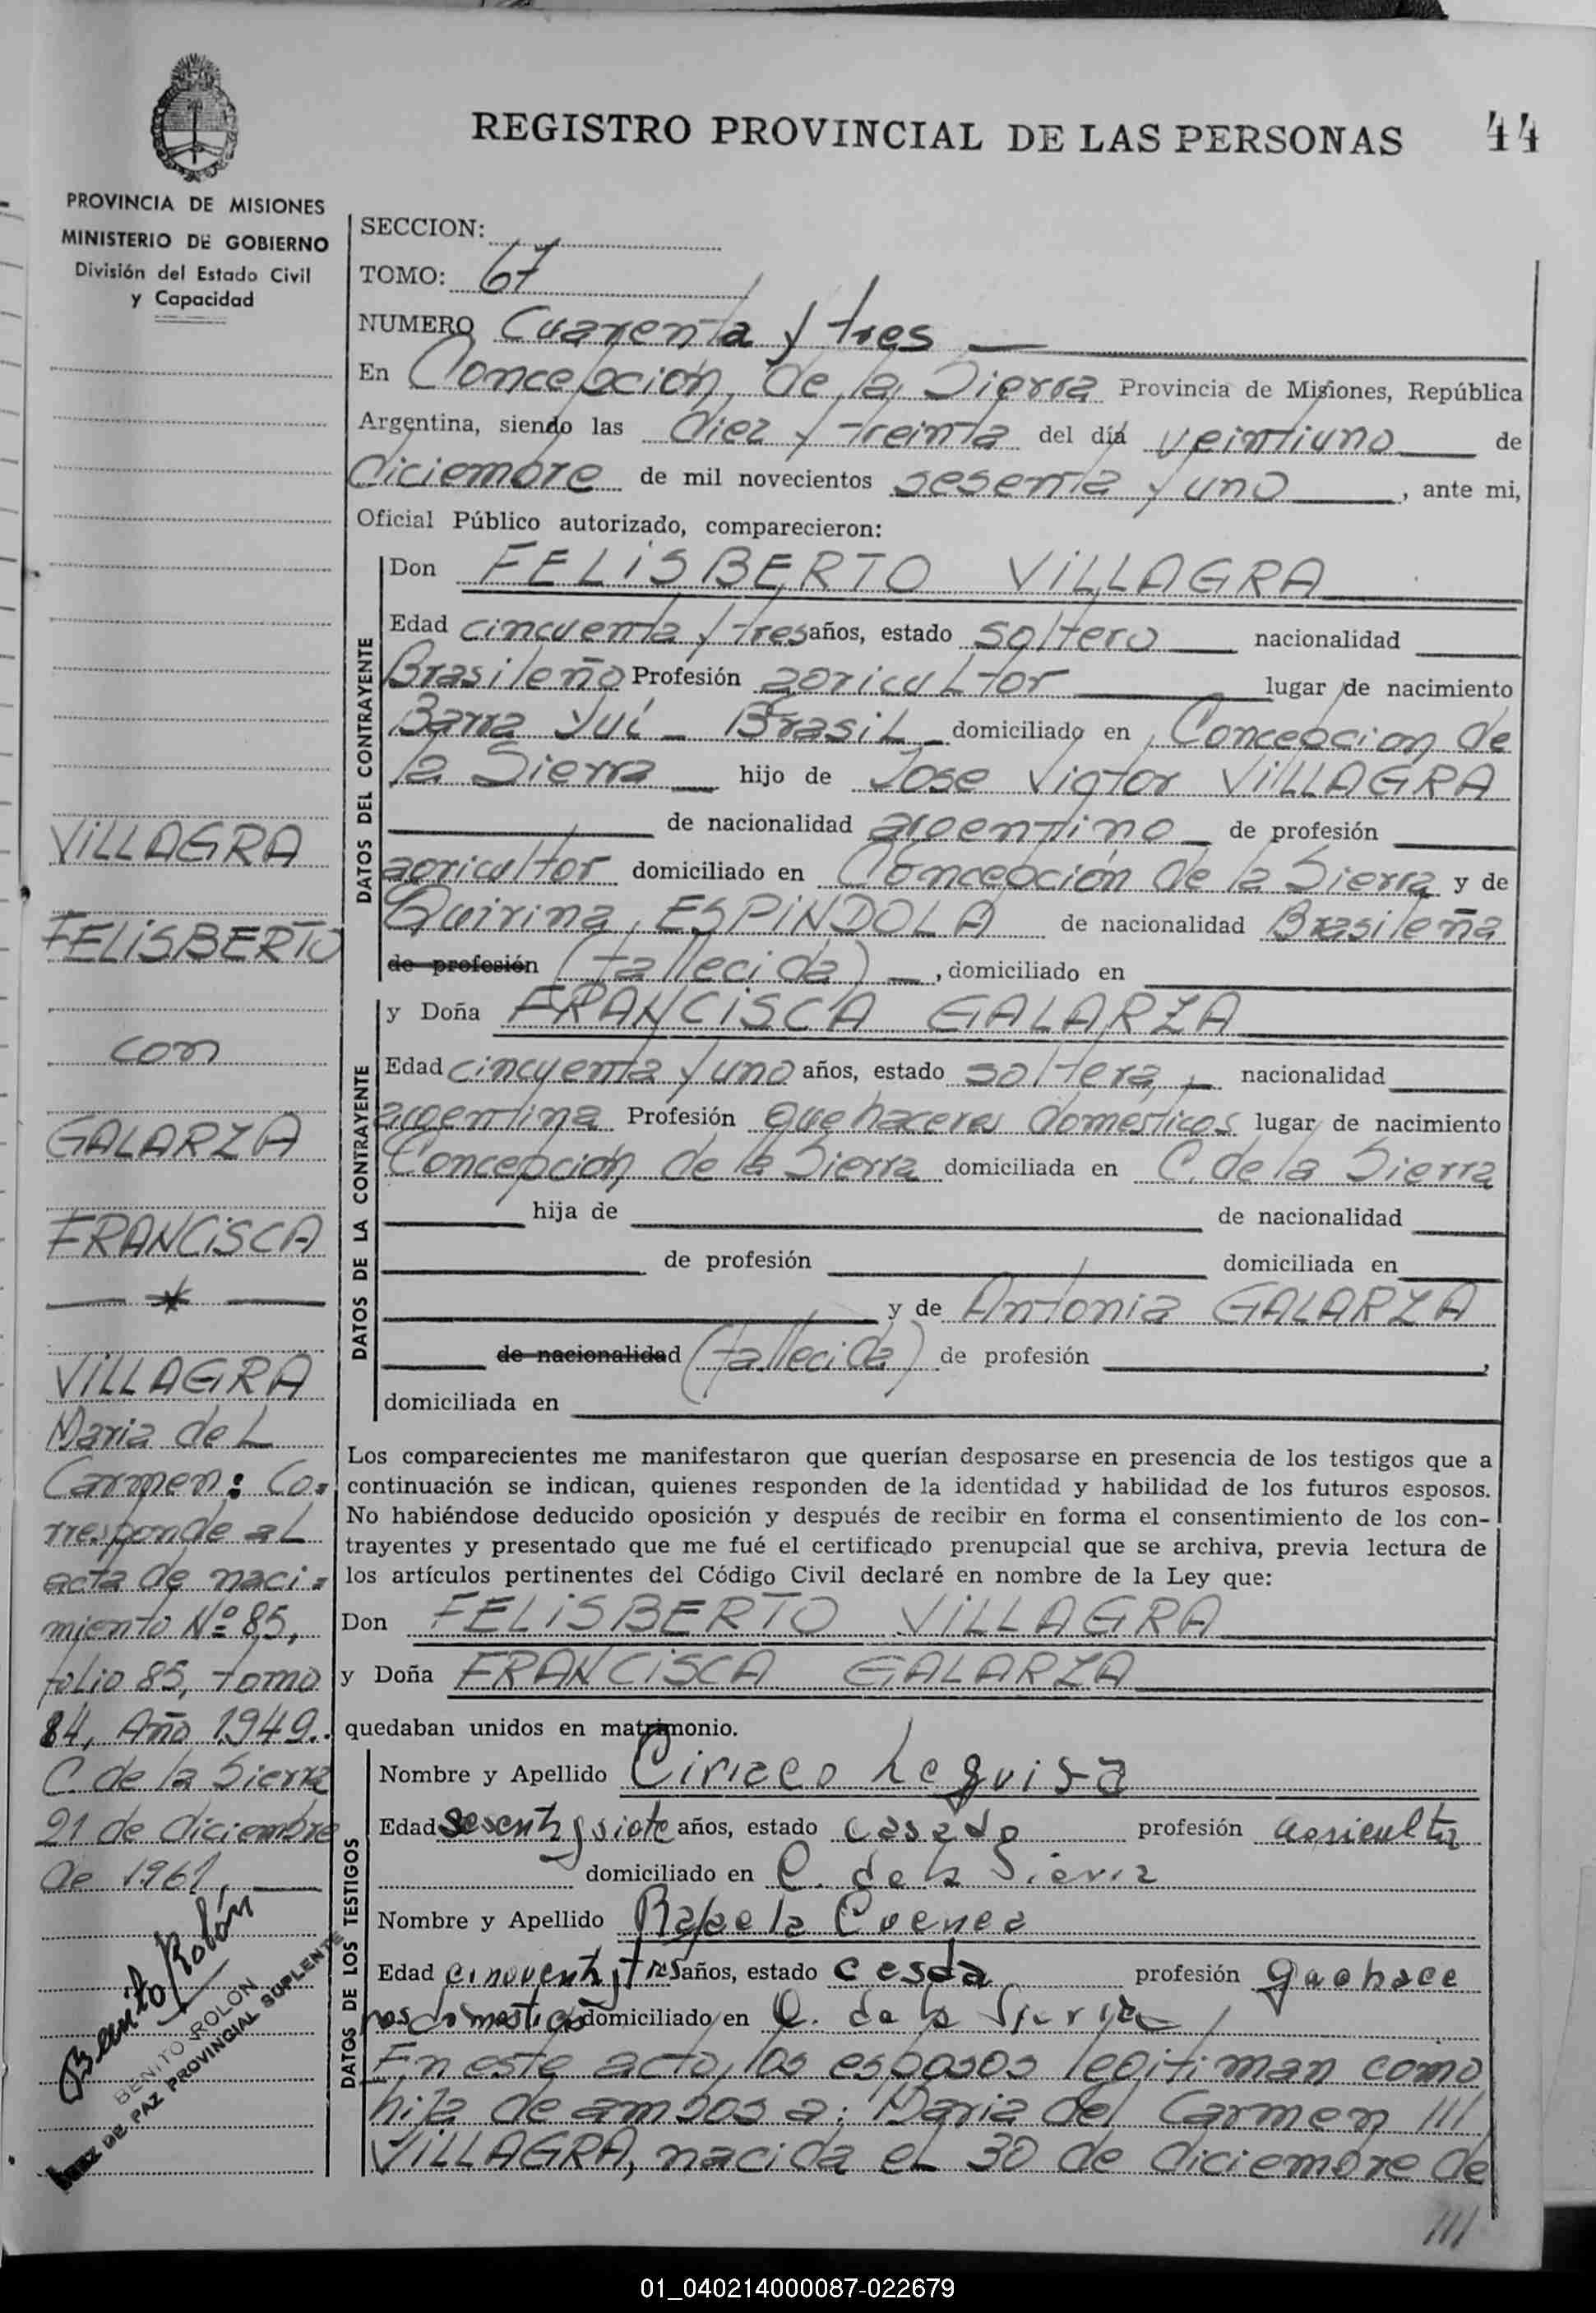 REGISTRO PROVINCIAL DE LAS PERSONAS 44
PROVINCIA DE MISIONES
MINISTERIO DE GOBIERNO
División del Estado Civil
y Capacidad
VILLAGRA
FELISBERTO
con
GALARZA
FRANCISCA
VILLAGRA
Maria deL
Carmen: Co-
rresponde aL
acta de naci-
miento Nº 85,
folio 85, tomo
84, Año 1949.
C. de la Sierra
21 de diciembre
de 1961
Benito Rolón
BENITO ROLON
JUEZ DE PAZ PROVINCIAL SUPLENTE
SECCION:
TOMO: 67
NUMERO Cuarenta y tres
En Concepcion de la Sierra Provincia de Misiones, República
Argentina, siendo las diez y treinta del día veintiuno de
diciembre de mil novecientos sesenta y uno, ante mi,
Oficial Público autorizado, comparecieron:
DATOS DEL CONTRAYENTE
Don FELISBERTO VILLAGRA
Edad cincuenta y tres años, estado soltero nacionalidad
Brasileño Profesión agricultor lugar de nacimiento
Barra Yuí - BrasiL domiciliado en Concepcion de
la Sierra hijo de Jose Victor VILLAGRA
de nacionalidad argentino de profesión
agricultor domiciliado en Concepción de la Sierra y de
Quirina ESPINDOLA de nacionalidad Brasileña
de profesión (fallecida), domiciliado en
DATOS DE LA CONTRAYENTE
y Doña FRANCISCA GALARZA
Edad cincuenta y uno años, estado soltera, nacionalidad
argentina Profesión quehaceres domesticos lugar de nacimiento
Concepcion de la Sierra domiciliada en C. de la Sierra
hija de de nacionalidad
de profesión domiciliada en
y de Antonia GALARZA
de nacionalidad (fallecida) de profesión ,
domiciliada en
Los comparecientes me manifestaron que querían desposarse en presencia de los testigos que a
continuación se indican, quienes responden de la identidad y habilidad de los futuros esposos.
No habiéndose deducido oposición y después de recibir en forma el consentimiento de los con-
trayentes y presentado que me fué el certificado prenupcial que se archiva, previa lectura de
los artículos pertinentes del Código Civil declaré en nombre de la Ley que:
Don FELISBERTO VILLAGRA
y Doña FRANCISCA GALARZA
quedaban unidos en matrimonio.
DATOS DE LOS TESTIGOS
Nombre y Apellido Ciriaco Leguisa
Edad sesenta y siete años, estado casado profesión agricultor
domiciliado en C. de la Sierra
Nombre y Apellido Rafaela Cuenca
Edad cincuenta y tres años, estado casda profesión quehace
res domesticos domiciliado en C. de la Sierra
En este acto, los esposos legitiman como
hija de ambos a: Maria del Carmen ///
VILLAGRA, nacida eL 30 de diciembre de
///
01_040214000087-022679